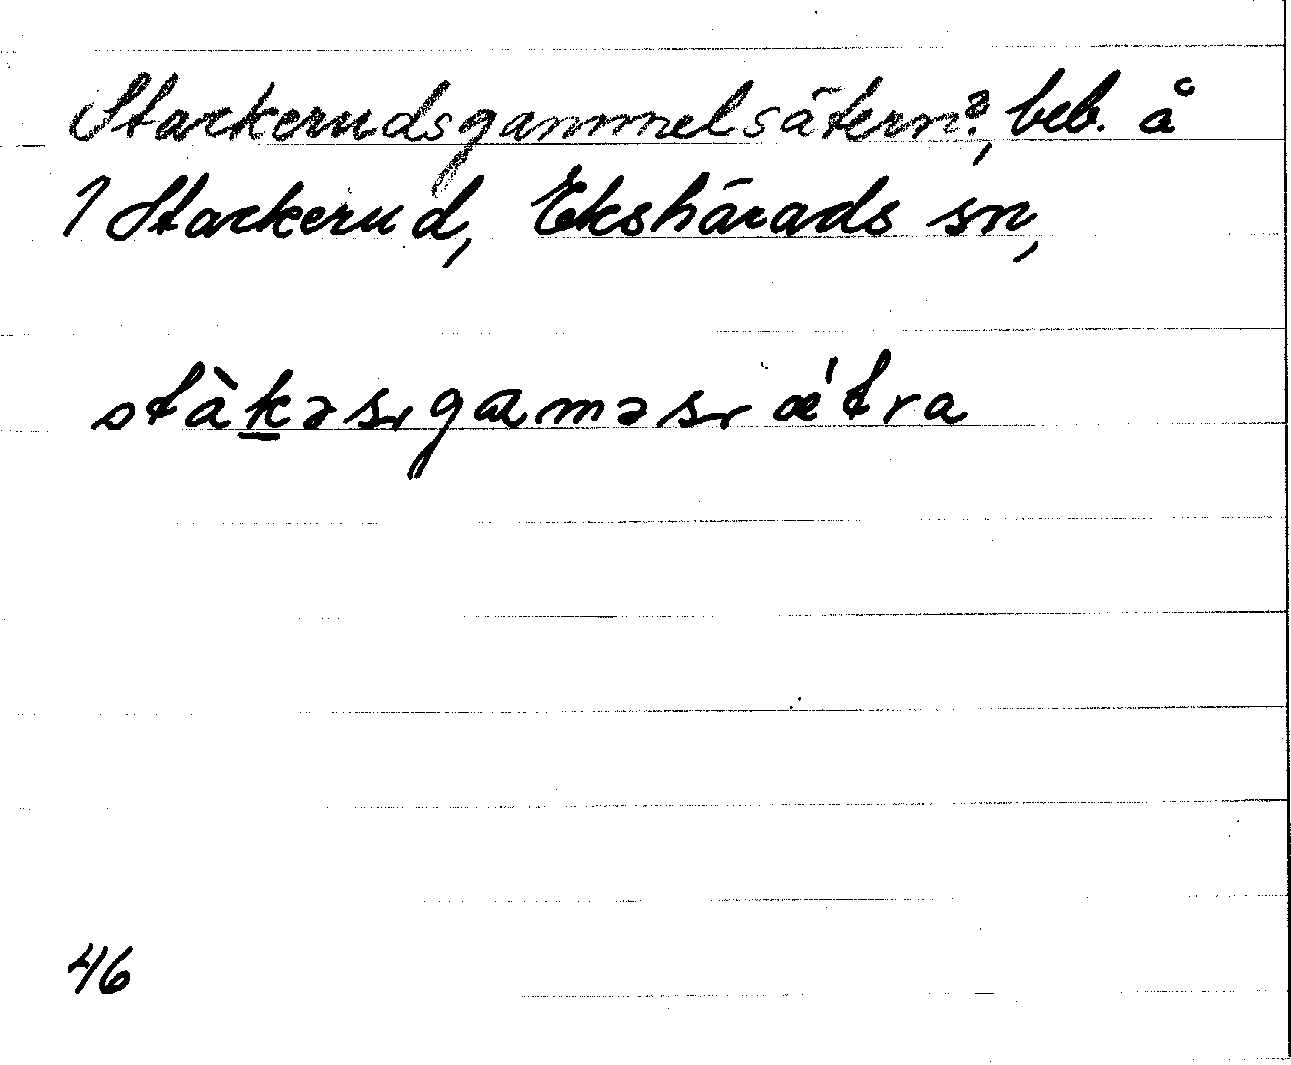 Stackerudsgammelsätern?, beb. å
1 Stackerud, Ekshärads sn,
stàk̲əsꞏgaməsꞏǽtra
46